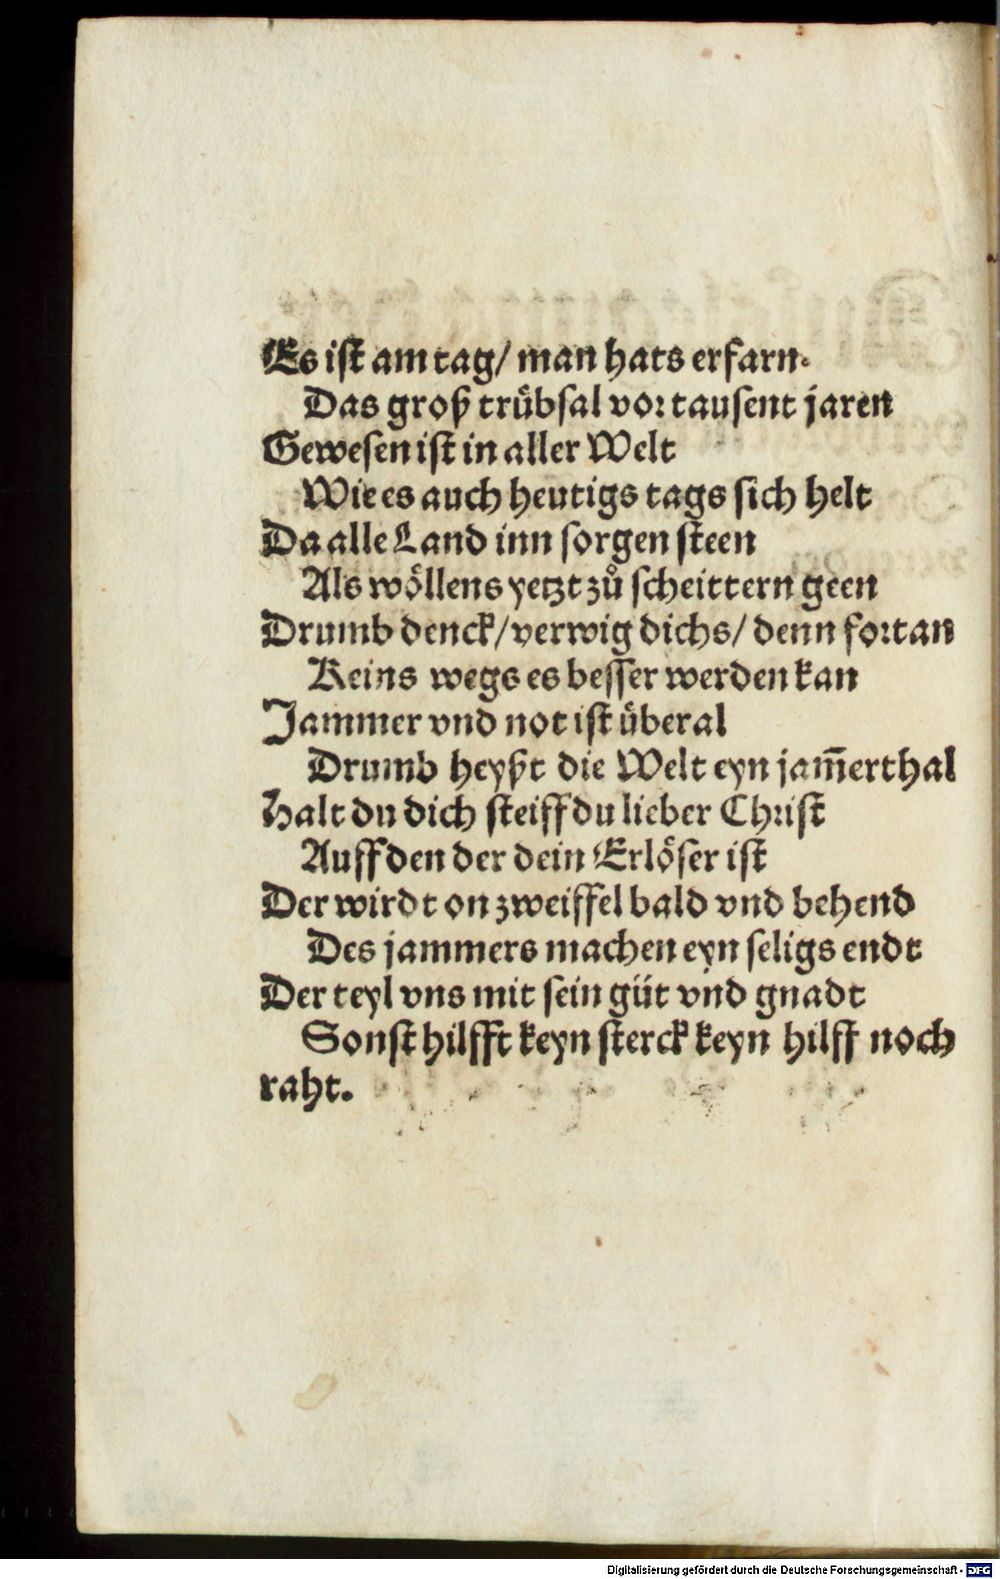 Es ist am tag/ man hats erfarn.
Das groß trübsal vor tausent jaren
Gewesen ist in aller Welt
Wie es auch heutigs tags sich helt
Da alle Land inn sorgen steen
Als wöllens yetzt zů scheittern geen
Drumb denck/ verwig dichs/ denn fortan
Keins wegs es besser werden kan
Jammer vnd not ist überal
Drumb heyßt die Welt eyn jam̅erthal
Halt du dich steiff du lieber Christ
Auff den der dein Erlöser ist
Der wirdt on zweiffel bald vnd behend
Des jammers machen eyn seligs endt
Der teyl vns mit sein güt vnd gnadt
Sonst hilfft keyn sterck keyn hilff noch
raht.
Digitalisierung gefördert durch die Deutsche Forschungsgemeinschaft - DFG